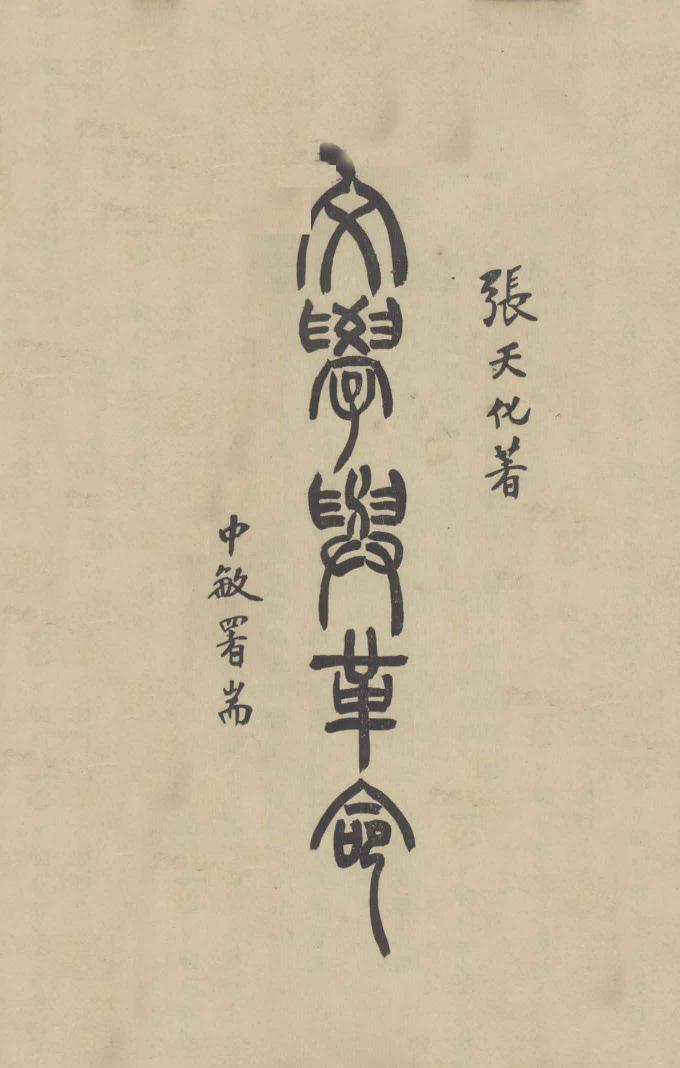 張天化著
文學與革命
中敏署耑